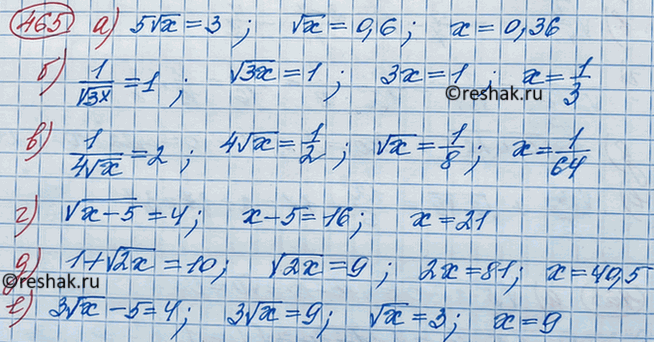 465 а) 5√x = 3 ; √x = 0,6 ; x = 0,36
б) 1/√3x = 1 ; √3x = 1 ; 3x = 1 ; x = 1/3
©reshak.ru
в) 1/4√x = 2 ; 4√x = 1/2 ; √x = 1/8 ; x = 1/64
г) √x-5 = 4 ; x-5 = 16 ; x = 21
д) 1+√2x = 10 ; √2x = 9 ; 2x = 81 ; x = 40,5
©reshak.ru
е) 3√x - 5 = 4 ; 3√x = 9 ; √x = 3 ; x = 9